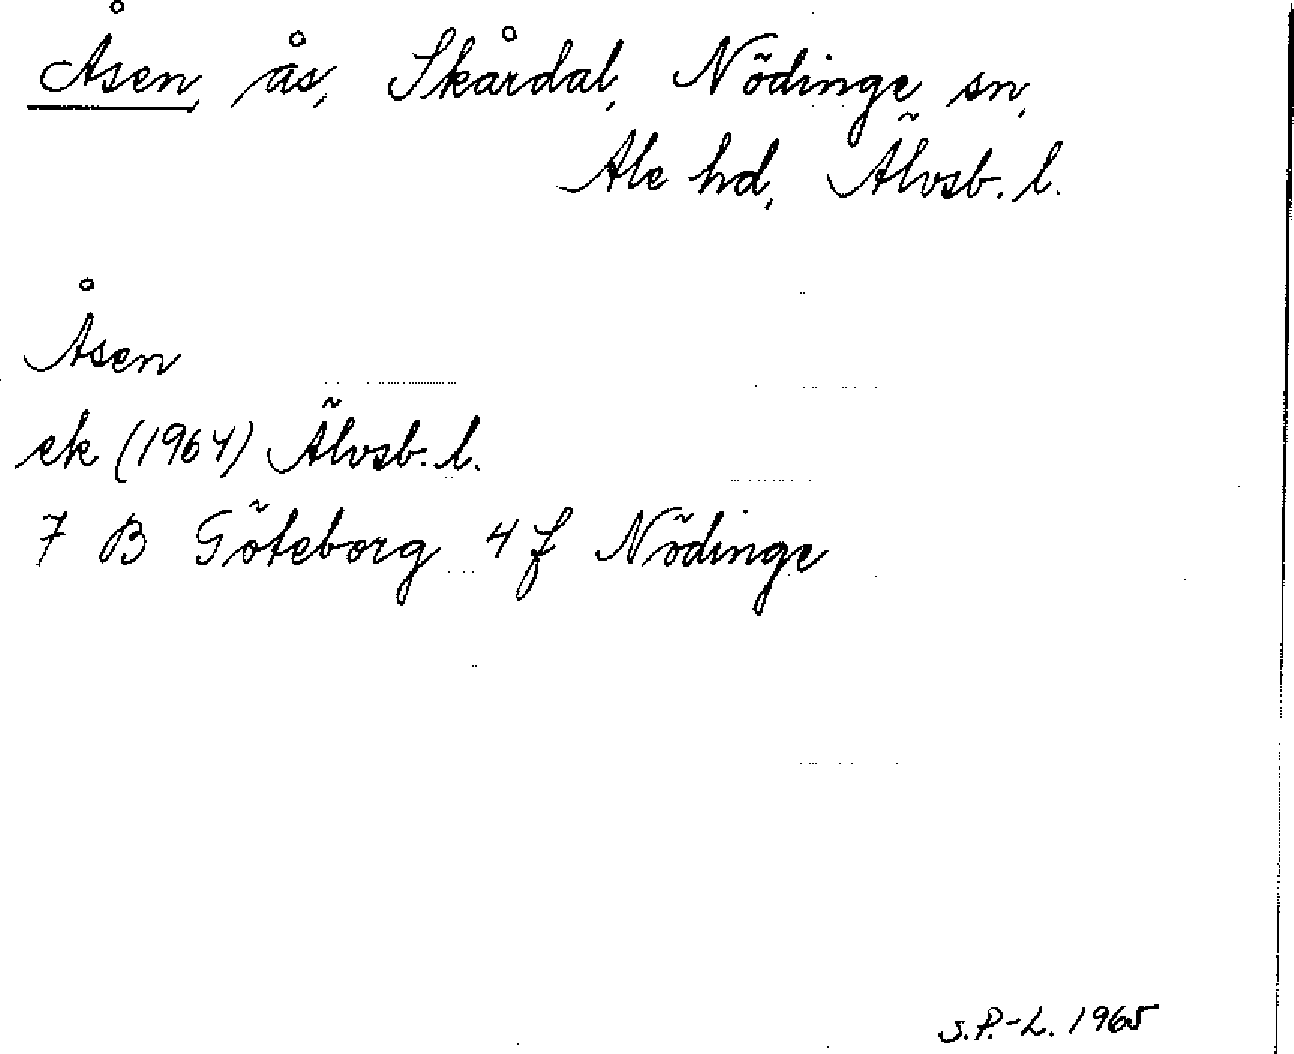 Åsen, ås, Skårdal, Nödinge sn,
Ale hd, Älvsb. l.
Åsen
ek (1964) Älvsb. l.
7 B Göteborg 4 f Nödinge
S.P.-L. 1965